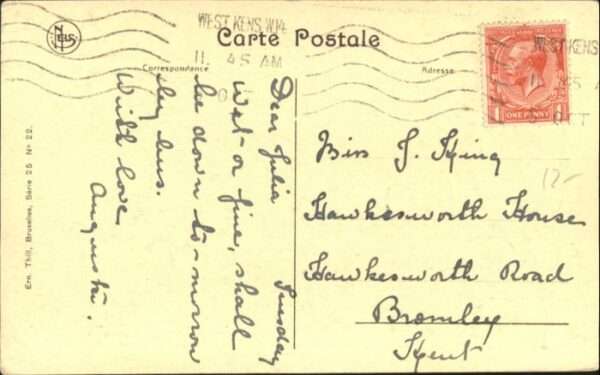 NELS
WEST KENS. W.14
11. 45 AM
Carte Postale
Correspondance
Adresse
WEST KENS
11. 45 A
OCT
ONE PENNY
Dear Julia
Tuesday
Wet or fine, shall
be down to-morrow
by bus.
With love
Augusta.
Miss J. King
Hawkesworth House
Hawkesworth Road
Bromley
Kent
12-
Ern. Thill, Bruxelles, Série 25 No 22.